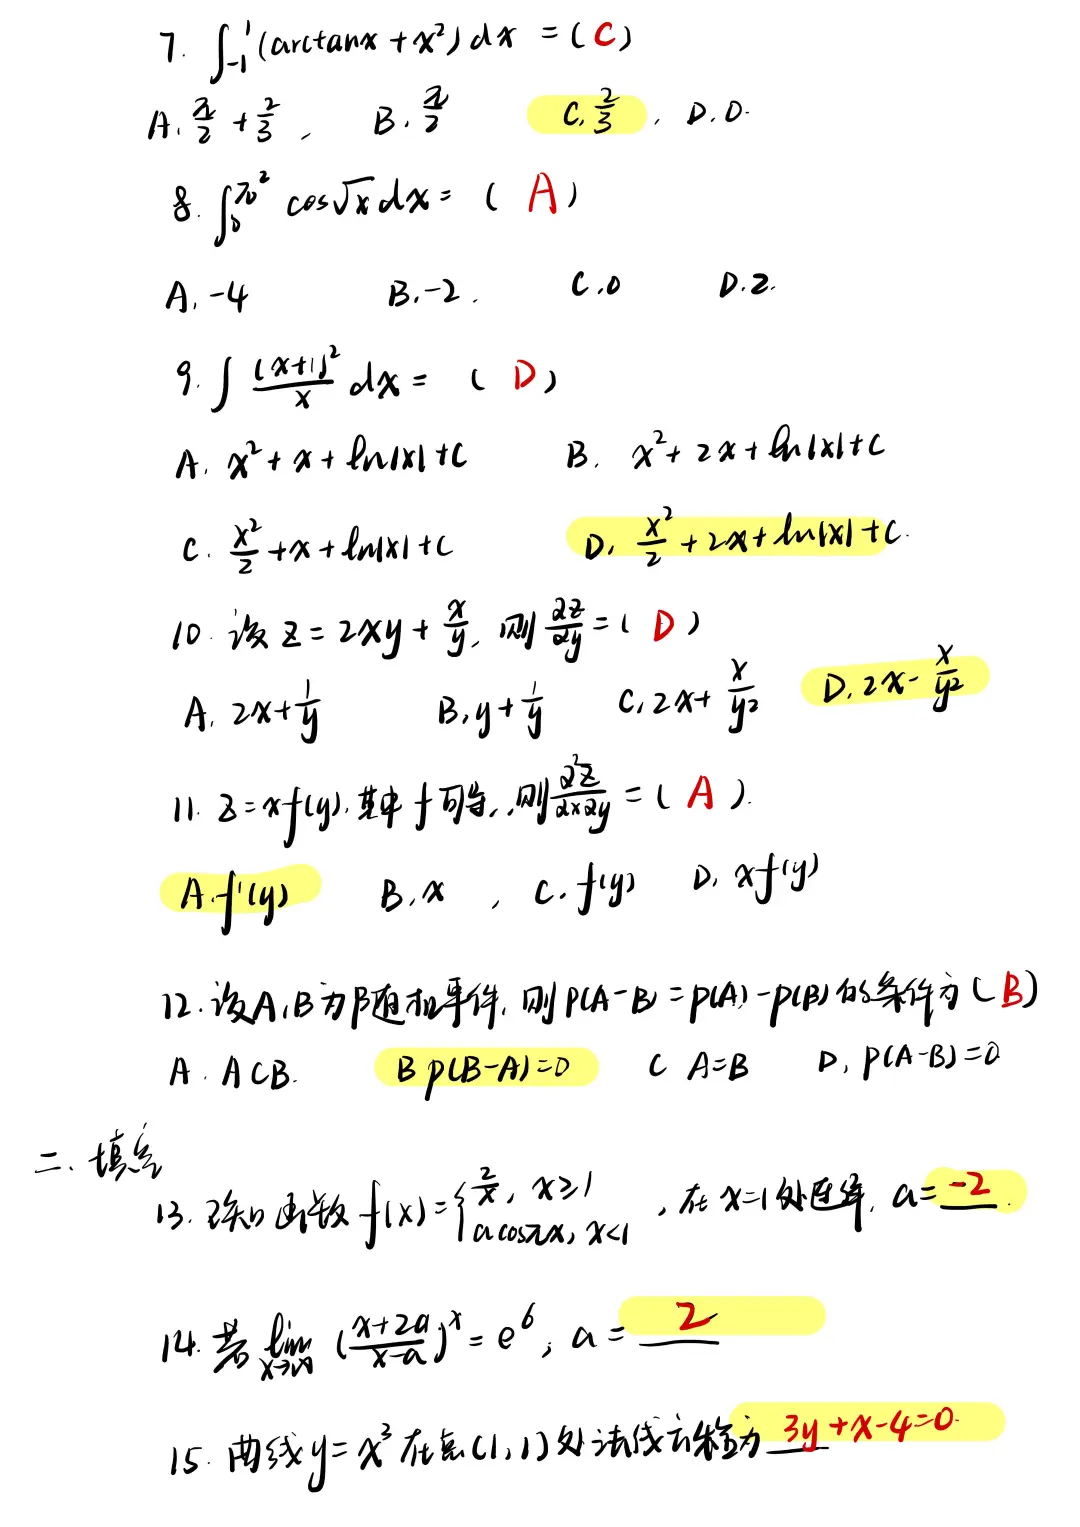 7. ∫₋₁¹ (arctanx + x²) dx = ( C )
A. π/2 + 2/3 , B. π/2 C. 2/3 , D. 0.
8. ∫₀^π² cos√x dx = ( A )
A. -4 B. -2. C. 0 D. 2.
9. ∫ (x+1)²/x dx = ( D )
A. x² + x + ln|x| + C B. x² + 2x + ln|x| + C
C. x²/2 + x + ln|x| + C D. x²/2 + 2x + ln|x| + C.
10. 设 z = 2xy + x/y, 则 ∂z/∂y = ( D )
A. 2x + 1/y B. y + 1/y C. 2x + x/y² D. 2x - x/y²
11. z = xf(y), 其中 f 可导, 则 ∂²z/∂x∂y = ( A ).
A. f'(y) B. x , C. f(y) D. xf(y)
12. 设A,B为随机事件, 则 P(A-B) = P(A) - P(B) 的条件为 ( B )
A. A⊂B. B P(B-A)=0 C A=B D. P(A-B)=0
二、填空
13. 已知函数 f(x) = { 2/x, x≥1
acosπx, x<1 , 在 x=1 处连续, a = -2.
14. 若 lim x→∞ ((x+2a)/(x-a))^x = e⁶, a = 2
15. 曲线 y = x³ 在点(1,1)处法线方程为 3y+x-4=0.